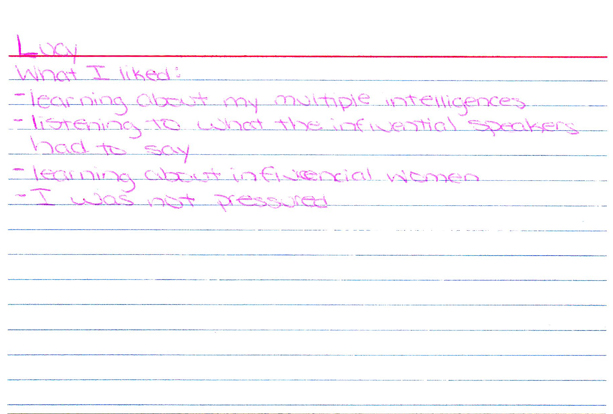 Lucy
What I liked:
- learning about my multiple intelligences
- listening to what the influential speakers
had to say
- learning about influencial women
- I was not pressured